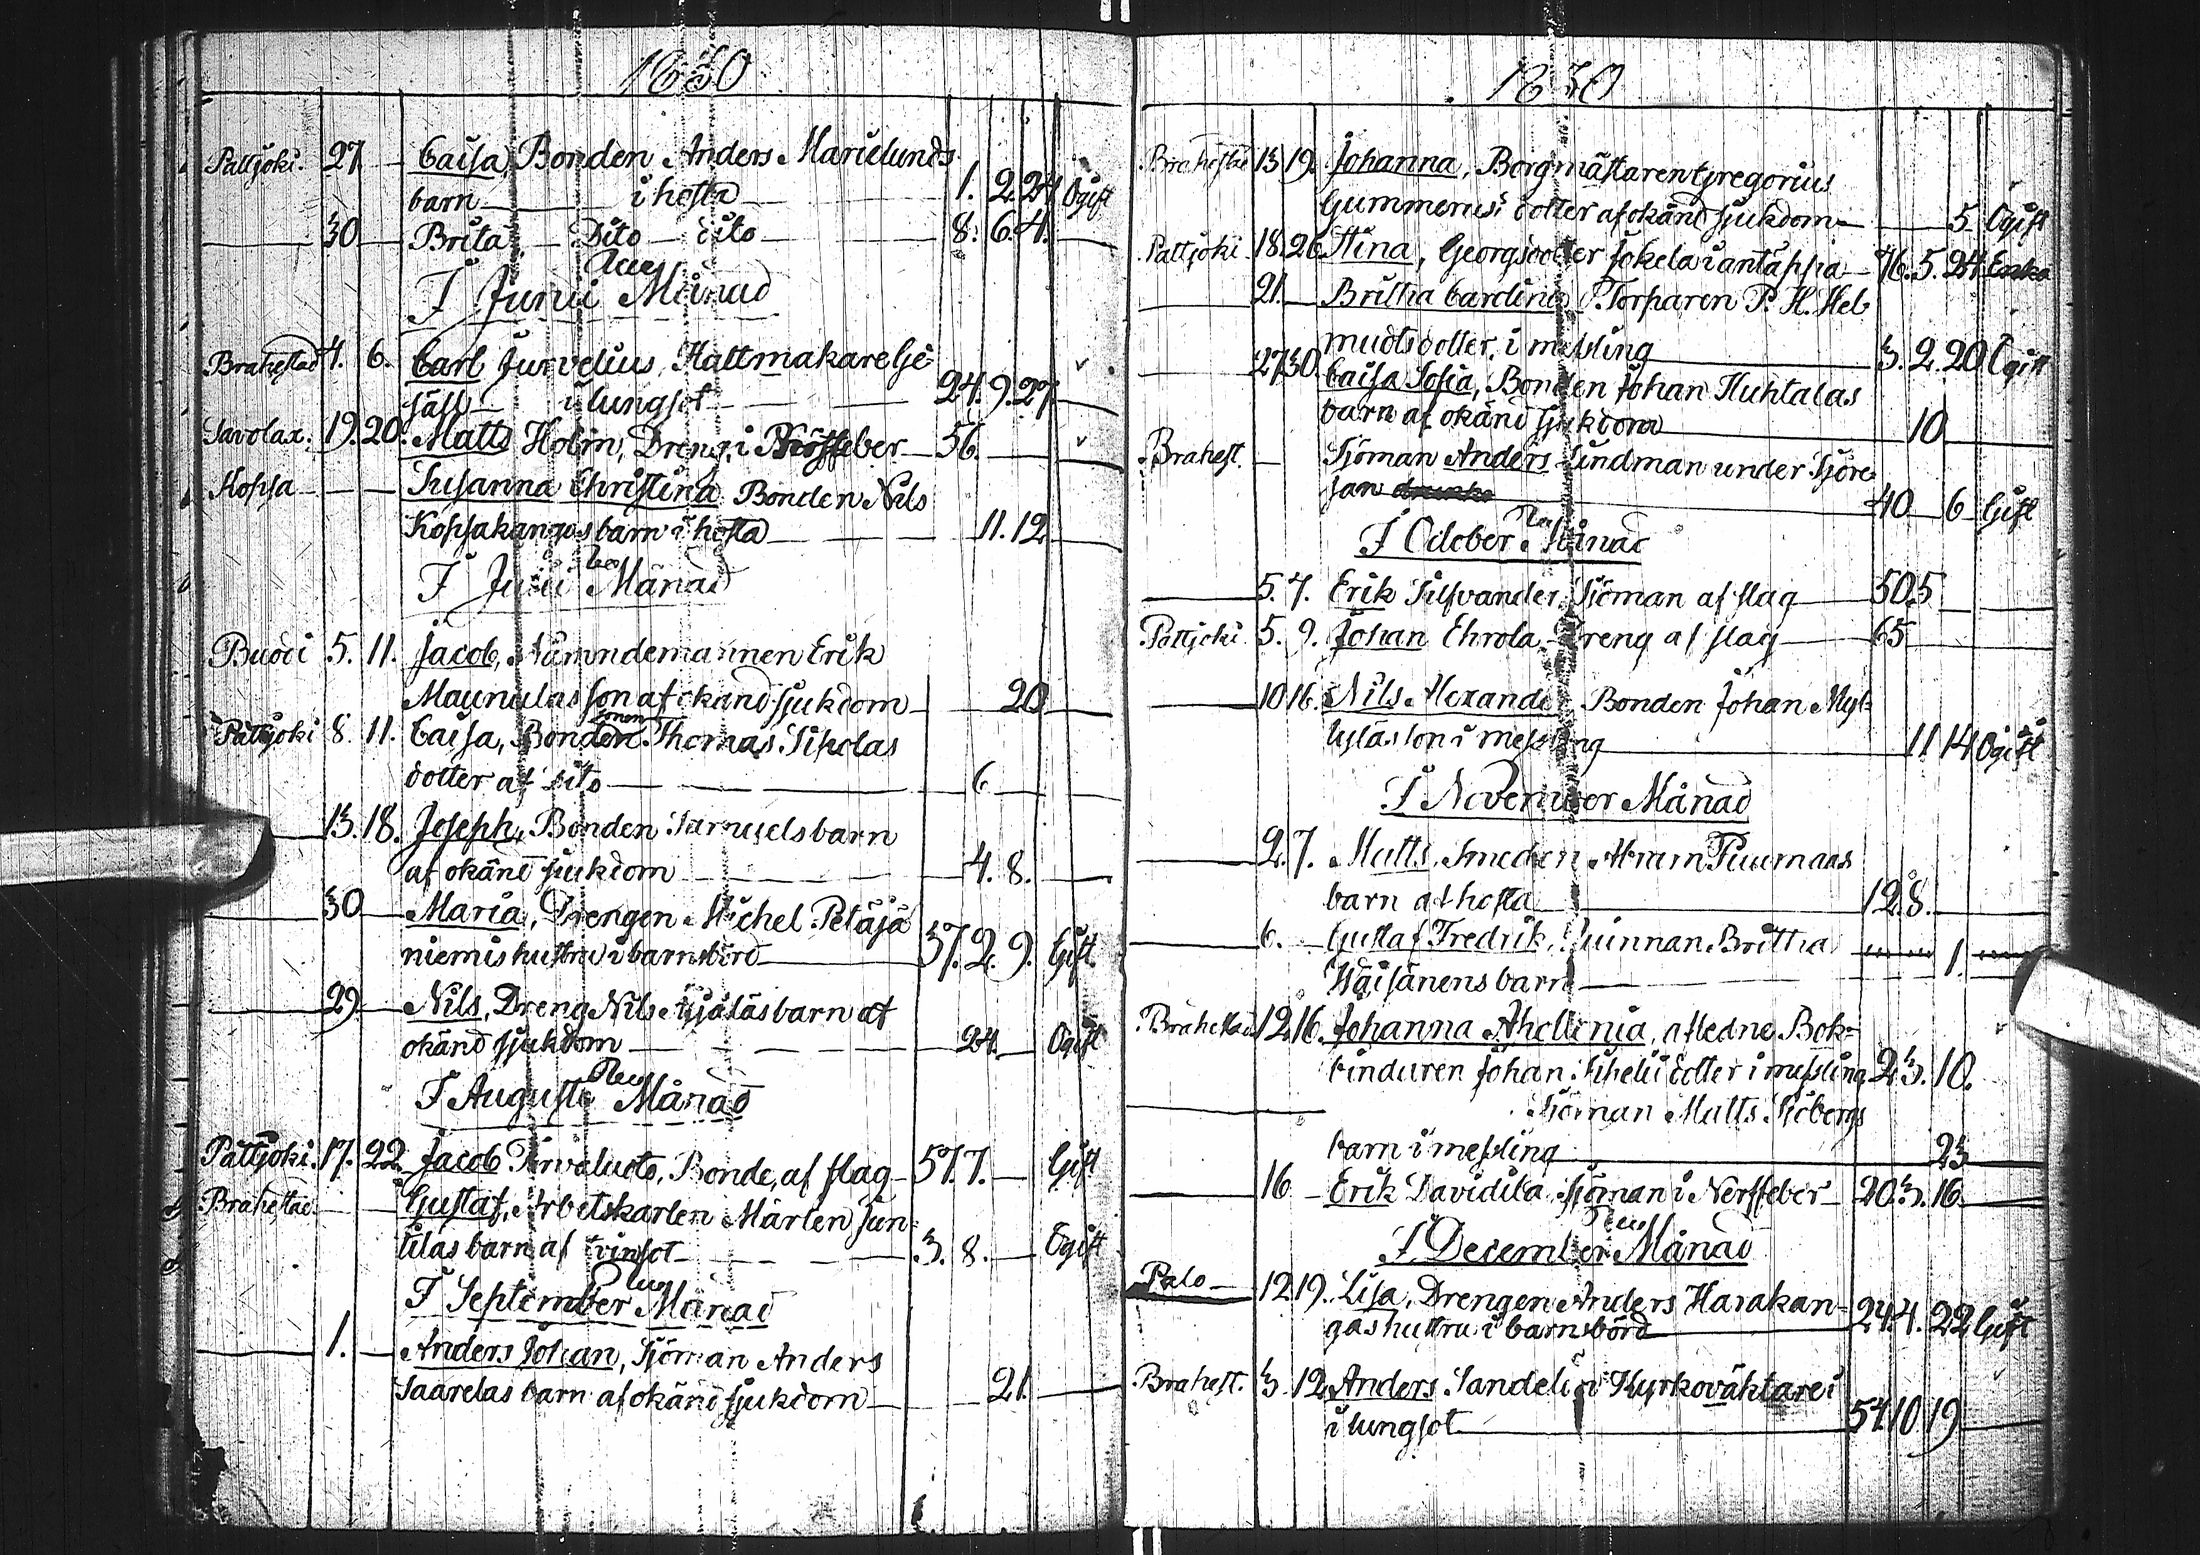 1830
Pattjoki. 27 — Caisa, Bonden Anders Marielunds
barn — i hosta — 1. 2. 24 Ogift
— 30 — Brita — Dito — dito — 8. 6. 4.
I Junii Månad
Brahestad 4. 6. Carl Jurvelius, Hattmakare Ge-
säll — i lungsot — 24. 9. 27.
Savolax. 19. 20. Matts Holm, Dreng, i — 56.
Kopsa — — Susanna Christina Bonden Nils
Kopsakangas barn i hosta — 11. 12
I Julii Månad
Buodi 5. 11. Jacob, Nämndemannen Erik
Maunulas son af okänd sjukdom — 20
Pattjoki 8. 11. Caisa, Bonden Thomas Sipolas
dotter af dito — 6
— 13. 18. Joseph, Bonden Samuels barn
af okänd sjukdom — 4. 8.
— 30 — Maria, Drengen Michel Petäjä
niemis hustru i barnsbörd — 37. 2. 9. Gift
— 29 — Nils, Dreng Nils barn af
okänd sjukdom — 24. Ogift
I Augusti Månad
Pattjoki. 17. 22 Jacob Tervaluoto, Bonde, af slag — 57. 7. — Gift
Brahestad — Gustaf, Arbetskarlen Mårten Jun-
tilas barn af tvinsot — 3. 8. — Ogift
I September Månad
— 1. — Anders Johan, Sjöman Anders
Saarelas barn af okänd sjukdom — 21.
1830
Brahestad 13 19. Johanna, Borgmästaren Gregorius
Gummerus' dotter af okänd sjukdom — 5 Ogift
Pattjoki 18. 26 Stina, Georgsdotter Jokela i antäppa — 76. 5. 24. Enka
— 21. — Britha Carolina, Torparen P. H. Hel-
mudts dotter, i messling — 3. 2. 20 Ogift
— 27 30 Caisa Sofia, Bonden Johan Huhtalas
barn af okänd sjukdom — 10
Brahest. — Sjöman Anders Lindman under Sjöre-
san — 40 — 6 — Gift
I October Månad
— 5. 7. Erik Silfvander, Sjöman af slag — 50. 5
Pattjoki 5. 9. Johan Ehrola, Dreng af slag — 65
— 10 16. Nils Alexander, Bonden Johan Myl-
lyläs son i messling — 11 14 Ogift
I November Månad
— 2. 7. Matts, Smeden Abram Tuumaas
barn af hosta — 12. 8.
— 6. — Gustaf Fredrik, Quinnan Britha
Wäisänens barn — 1.
Brahestad 12. 16. Johanna Ahellenia, afledne Bok-
bindaren Johan Sipelii dotter i messling 2. 3. 10.
— Sjöman Matts Sjöbergs
barn i messling — 23
— 16 — Erik Davidila, Sjöman i Nerffeber — 20. 3. 16
I December Månad
Palo — 12 19. Lisa, Drengen Anders Harakan-
gas hustru i barnsbörd — 24. 4. 22 Gift
Brahest. 3. 12 Anders Sandelin Kyrkoväktare i
i lungsot — 54 10 19